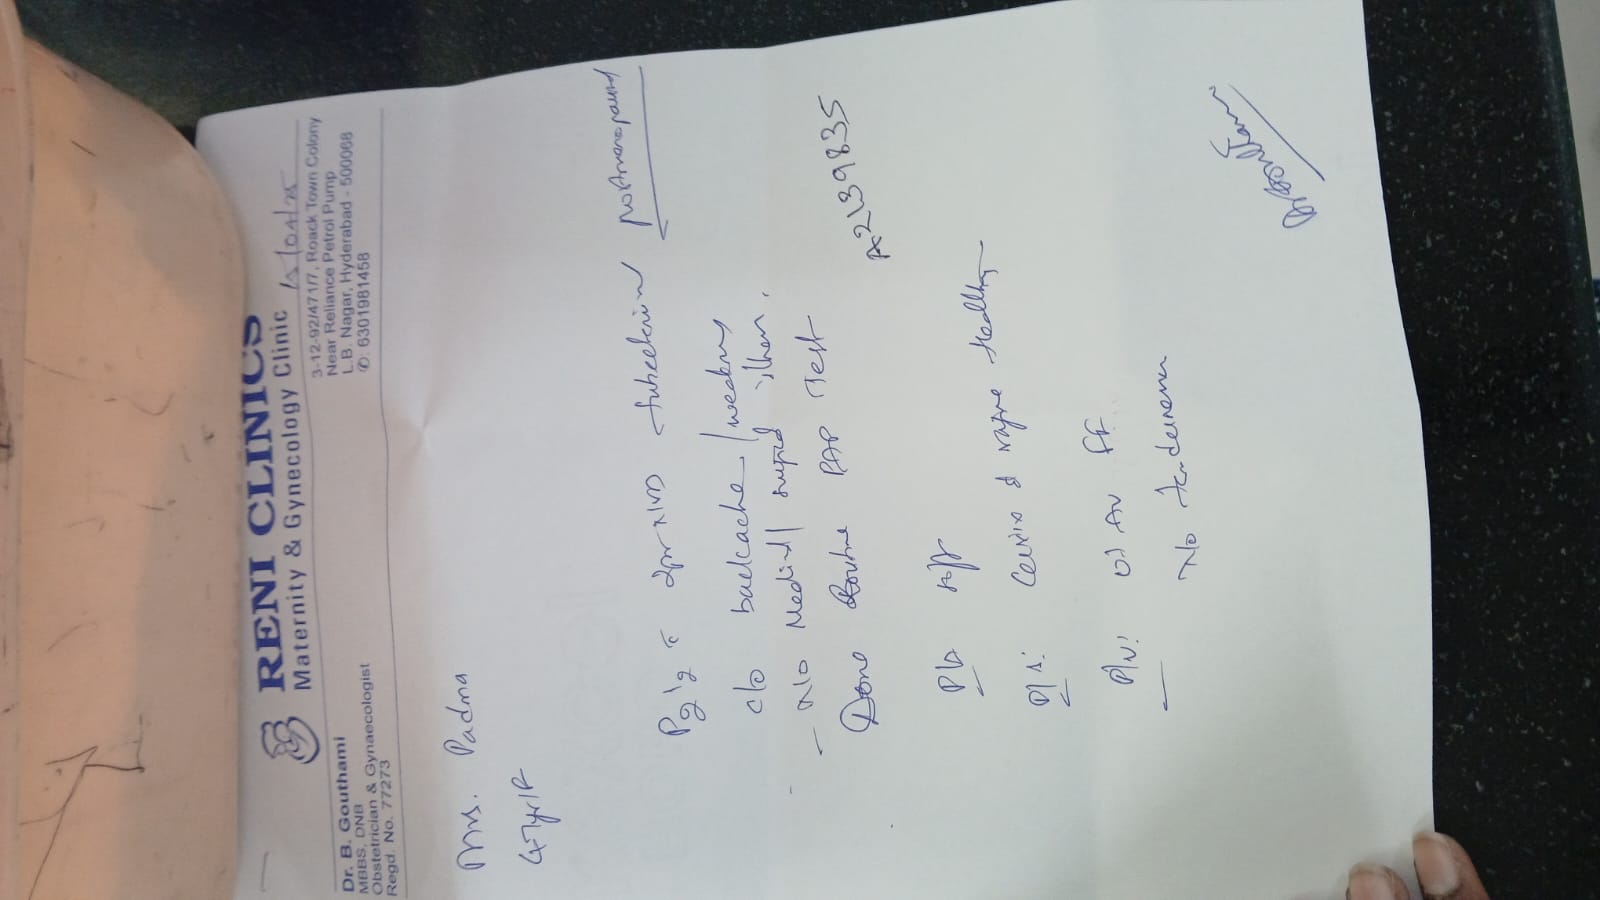 RENI CLINICS
Maternity & Gynecology Clinic
Dr. B. Gouthami
MBBS, DNB
Obstetrician & Gynaecologist
Regd. No. 77273
3-12-92/471/7, Roack Town Colony
Near Reliance Petrol Pump
L.B. Nagar, Hyderabad - 500068
✆: 6301981458
Mrs. Padma
47yr/F
c/o backache / weakness
- No Medical | illness.
Done Routine PAP Test A2139835
P/A
P/S: Cervix & vagina Healthy
P/V: UT AV FF
No tenderness